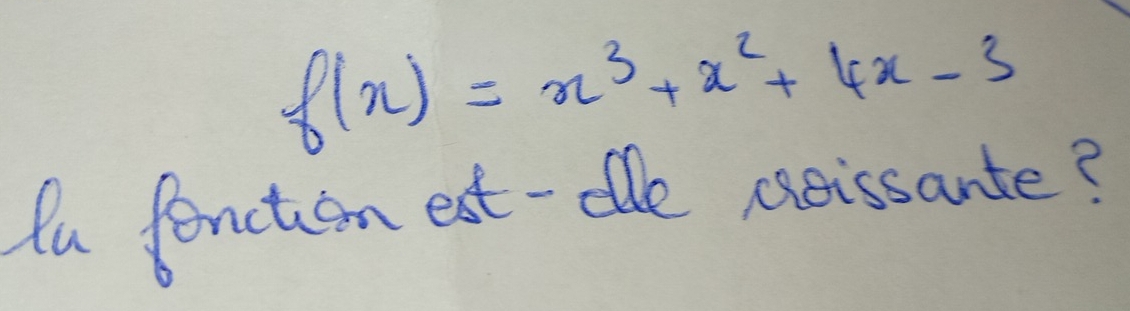 f(x) = x³ + x² + 4x - 3
la fonction est-elle croissante ?